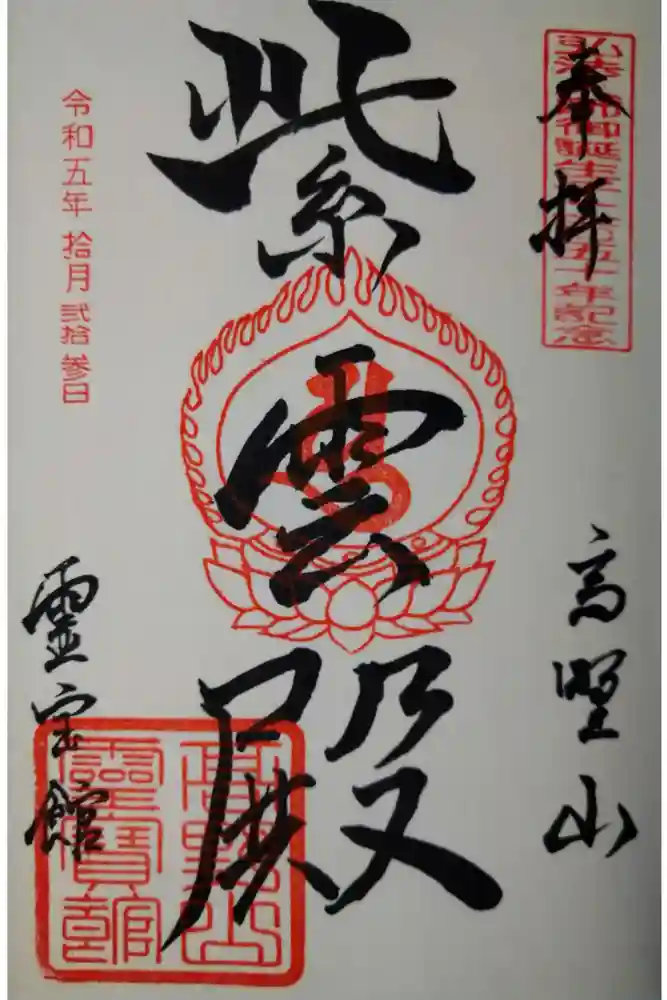 奉拝
弘法大師御誕生千二百五十年記念
高野山
紫雲殿
令和五年 拾月 弐拾参日
霊宝館
高野山
靈寶館